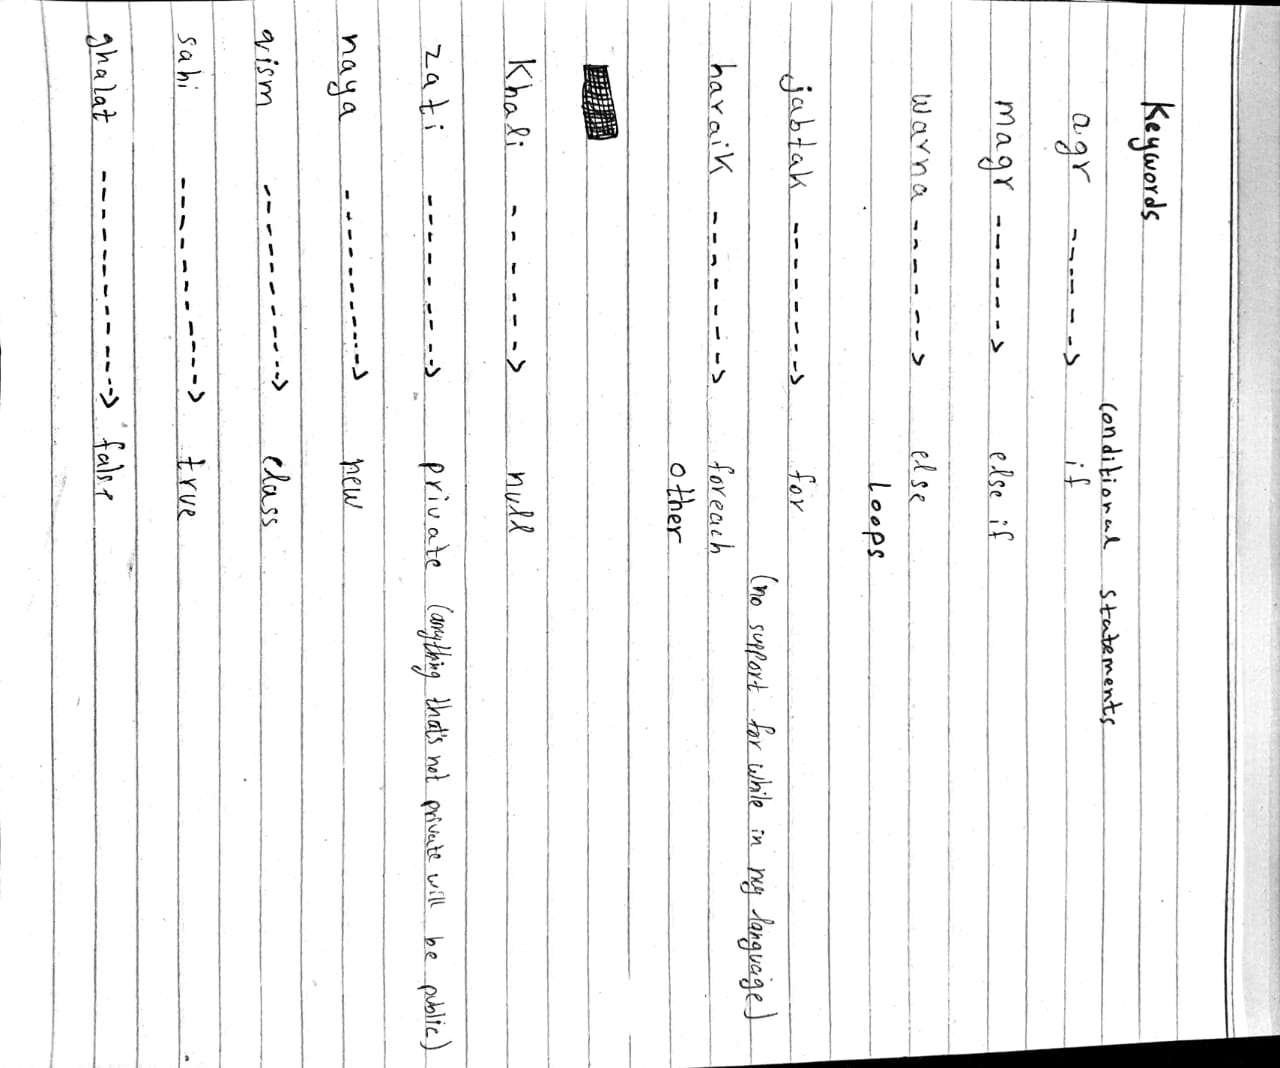 Keywords
conditional statements
agr ------> if
magr ------> else if
warna ------> else
Loops
jabtak --------> for
(no support for while in my language)
haraik --------> foreach
other
Khali ------> null
zati ---------> private (anything that's not private will be public)
naya -----------> new
qism -----------> class
sahi -----------> true
ghalat ------------> false